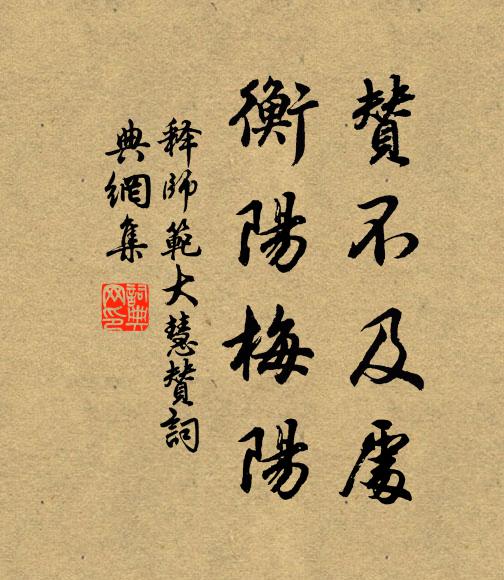 贊不及處
衡陽梅陽
释師範大慧贊詞
典網集
詞典網印